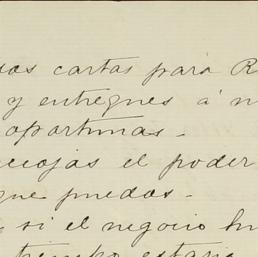 sas cartas para R
y entregues á
oportunas.
recojas el poder
que puedas.
si el negocio
tiempo estaria